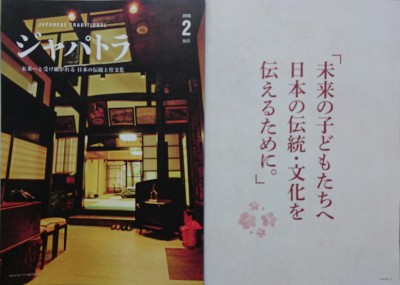 JAPANESE TRADITIONAL
ジャパトラ
未来へと受け継がれる 日本の伝統と住文化
2
「未来の子どもたちへ
日本の伝統・文化を
伝えるために。」